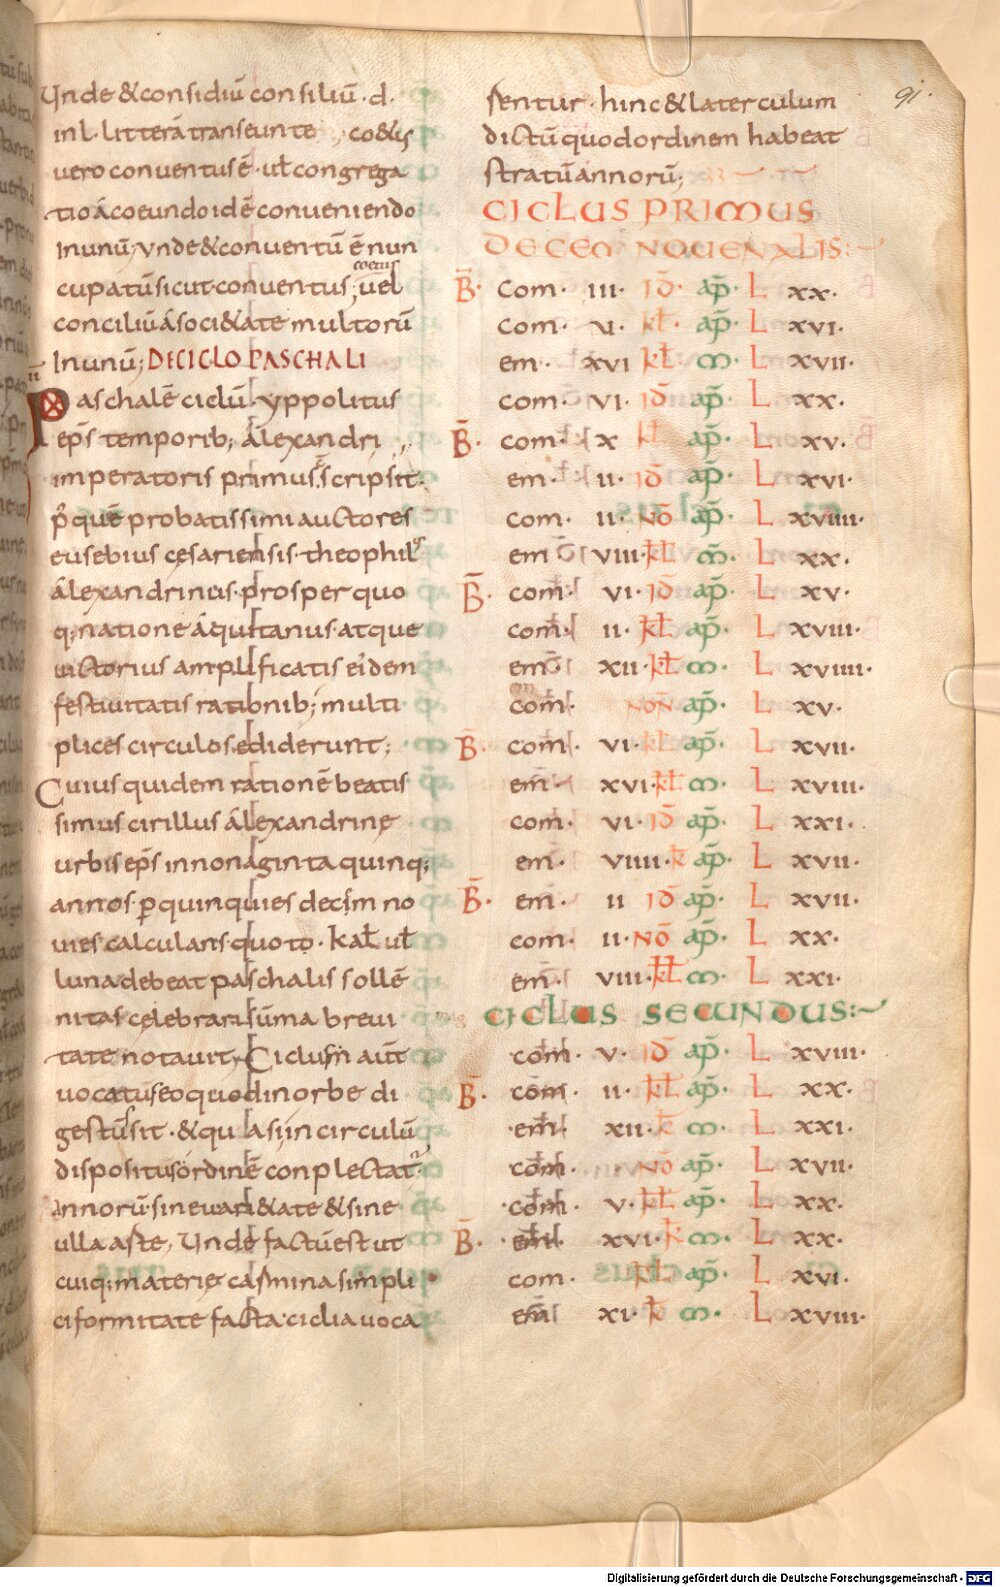 Unde &considiū consiliū · d ·
in l · litterā transeunte co&us
vero conventus ē · uł congrega
tio á coeundo id ē conveniendo
Inunū; vnde &conuentū ē nun
coetus
cupatū sicut · conventus; uel
conciliū á soci&ate multorū
Inunū; DE CICLO PASCHALI
Paschalē ciclū · yppolitus
ep̄s temporib; álexandri
imperatoris primus scripsit ·
p̄ quē probatissimi auctores
eusebius cesariensis · theophilus
álexandrinus · prosper quo
q; natione áquitanus · atque
uictorius amplificatis eidem
festiuitatis rationib; multi
plices circulos ediderunt;
Cuius quidem rationē beatis
simus cirillus álexandrine
urbis ep̄s in nonáginta quinq;
annos · p quinquies decim no
uies calculans quoto · kał uł
luna debeat paschalis sollē
nitas celebrari sūma breui
tate notauit; Ciclum aūt
uocatū eo quod in orbe di
gestus sit · &quasi in circulū
dispositus ordinē conplectat
annorū · sine uari&ate &sine
ulla aste, Unde factū est ut
cuiq; materie carmina simpli
ci formitate facta · ciclia uoca
91 ·
sentur · hinc &laterculum
dictū quod ordinem habeat
stratū annorū;
CICLUS PRIMUS
DECEM NOUENALIS :
B̄ · com · iii · ID̄ · ap̄ · L xx ·
com · u · kł · ap̄ · L xvi ·
em · xvi kł · m̄ · L xvii ·
com · vi · ID̄ · ap̄ · L xx ·
B̄ · com · x kł · ap̄ · L xv ·
em · ii · ID̄ ap̄ · L xvi ·
com · ii · NŌ ap̄ · L xviiii ·
em viii · kł m̄ · L xx ·
B̄ · com · vi · ID̄ ap̄ · L xv ·
com · ii · kł ap̄ · L xviii ·
em xii · kł m · L xviiii ·
com · NON̄ ap̄ · L xv ·
B̄ · com · vi · kł ap̄ · L xvii ·
em · xvi · kł m · L xviii ·
com · vi · ID̄ ap̄ · L xxi ·
em · viiii · k ap̄ · L xvii ·
B̄ · em · ii ID̄ ap̄ · L xvii ·
com · ii · NŌ ap̄ · L xx ·
em viii · kł m · L xxi ·
CICLUS SECUNDUS :
com · v · ID̄ ap̄ · L xviii ·
B̄ · com · ii · kł ap̄ · L xx ·
em xii · k m · L xxi ·
com · NŌ ap̄ · L xvii ·
com · v · kł ap̄ · L xx ·
B̄ · em · xvi · k m · L xx ·
com · kł ap̄ · L xvi ·
em xi · k m · L xviii ·
Digitalisierung gefördert durch die Deutsche Forschungsgemeinschaft - DFG